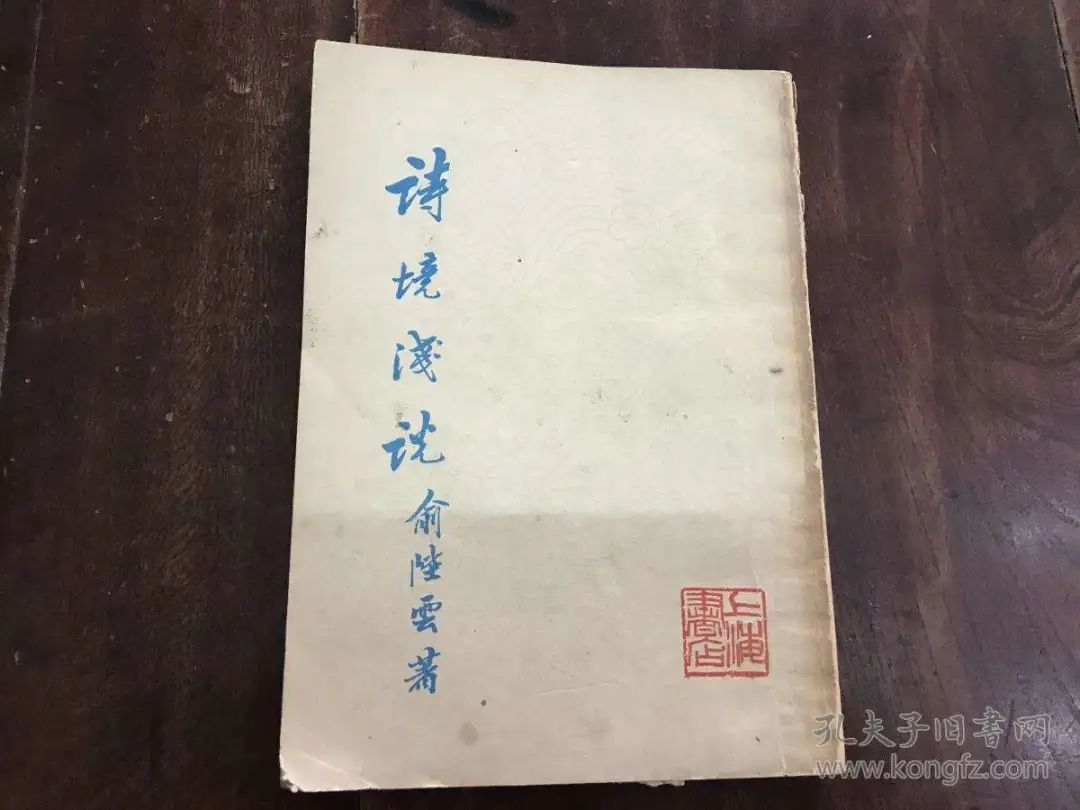 詩境淺説
俞陛雲著
上海
書店
孔夫子旧书网
www.kongfz.com